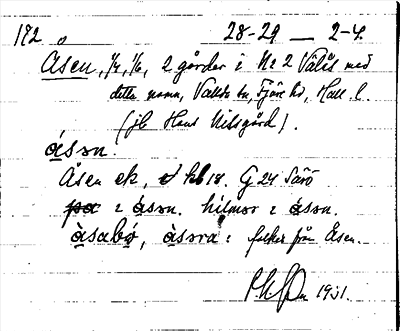 192 28-29 — 2-4.
Åsen, 1/4, 1/6, 2 gårder i No 2 Välås med
detta namn, Vallda sn, Fjäre hd, Hall. l.
(jfr Hans Nilsgård).
åsən.
Åsen ek, kbl 18. G 24 Särö
på i åsən. hilmər i åsən.
àsabø, àsəra: folket från Åsen.
1931.